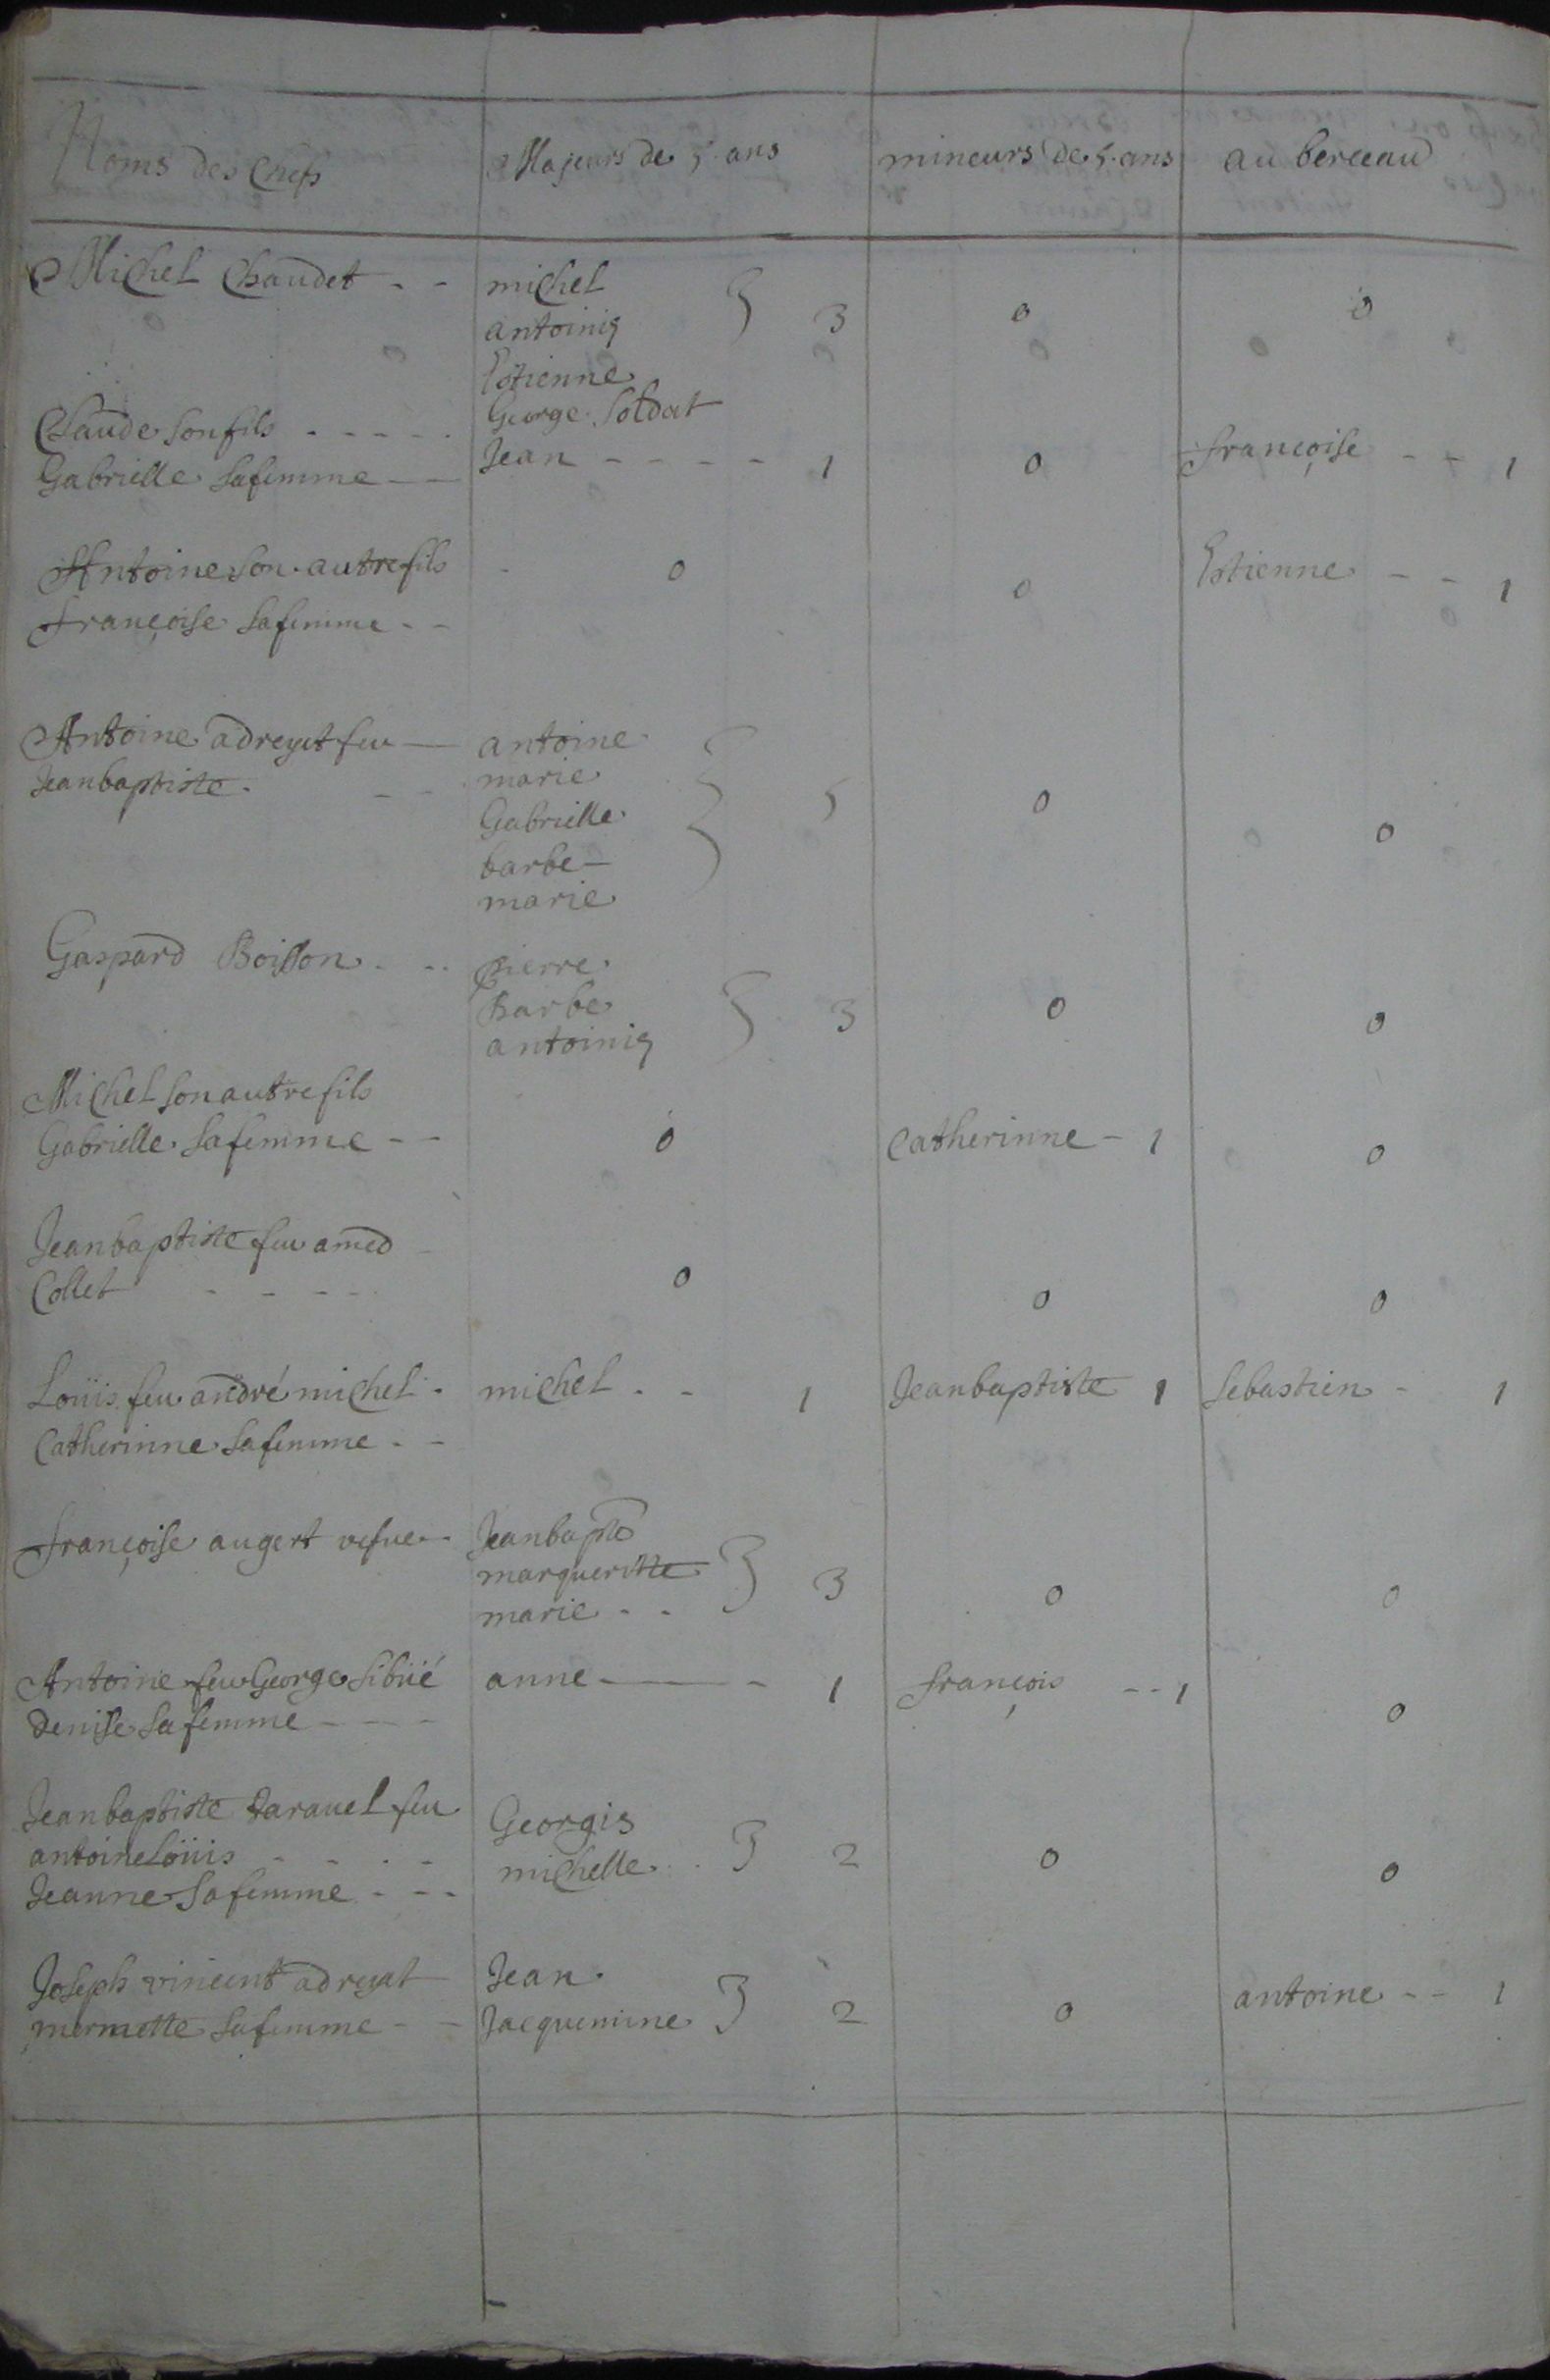 Noms des Chefs Majeurs de 5 ans mineurs de 5 ans au berceau
Michel Chaudet - - michel
antoinig 3 0 0
Estienne
George Soldat
Claude son fils - - - - -
Gabrielle sa femme - - Jean - - - - 1 0 françoise - - 1
Antoine son autre fils 0 0 Estienne - - 1
françoise sa femme - -
Antoine adreyt feu - antoine
Jeanbaptiste - - marie
Gabrielle 5 0 0
barbe -
marie
Gaspard Boisson - - pierre
Barbe 3 0 0
antoinig
Michel son autre fils
Gabrielle sa femme - - 0 Catherinne - 1 0
Jeanbaptiste feu amed
Collet - - - - 0 0 0
Loüis feu andré michel - michel - - 1 Jeanbaptiste 1 Sebastien - 1
Catherinne sa femme - -
françoise augert vefve - Jeanbapte
margueritte 3 0 0
marie - -
Antoine feu George Sibüé anne - - 1 françois - - 1 0
denise sa femme - - -
Jeanbaptiste daravel feu Georgis
antoine Loüis - - - - michelle 2 0 0
Jeanne sa femme - - -
Joseph vincent adreyat Jean
mermette sa femme - - Jacquemine 2 0 antoine - - 1